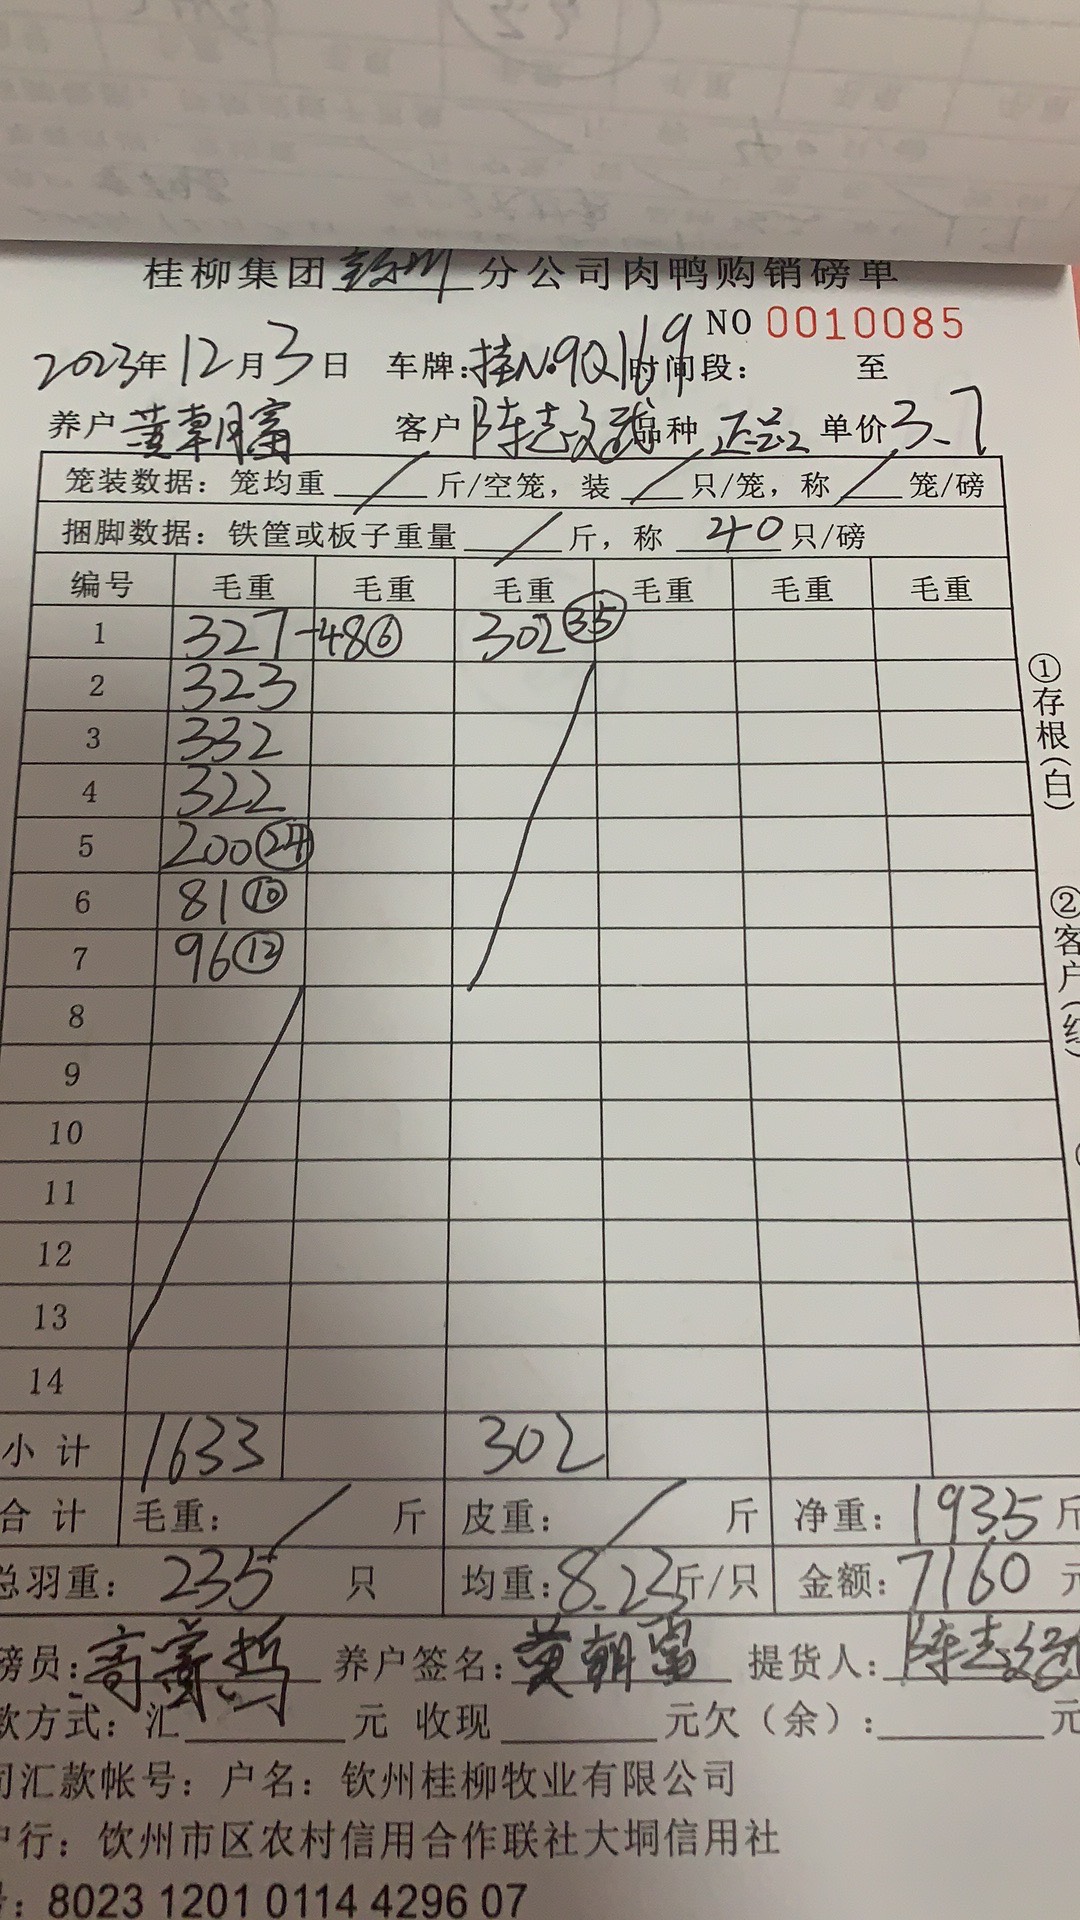 桂柳集团钦州分公司肉鸭购销磅单
NO 0010085
2023年12月3日 车牌:桂N·9Q169 时间段: 至
养户 黄朝富 客户 陈志 品种 正品2 单价3.7
笼装数据:笼均重 / 斤/空笼,装 / 只/笼,称 / 笼/磅
捆脚数据:铁筐或板子重量 / 斤,称 40 只/磅
编号 毛重 毛重 毛重 毛重 毛重 毛重
1 327 -48⑥ 302㉟
2 323
3 332
4 322
5 200㉔
6 81⑩
7 96⑫
8
9
10
11
12
13
14
小计 1633 302
合计 毛重: / 斤 皮重: / 斤 净重:1935斤
总羽重:235只 均重:8.23斤/只 金额:7160元
磅员: 养户签名:黄朝富 提货人:陈志
款方式:汇 元 收现 元欠(余): 元
司汇款帐号:户名:钦州桂柳牧业有限公司
户行:饮州市区农村信用合作联社大垌信用社
号:8023 1201 0114 4296 07
①存根(白)
②客户(红)